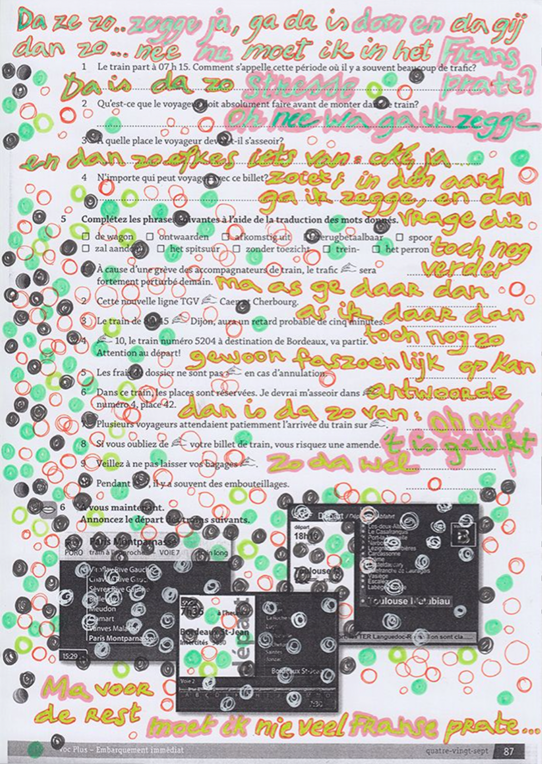 Da ze zo.. zegge ja, ga da is dan en da gij
dan zo... nee ne moet ik in het Frans
1 Le train part à 07 h 15. Comment s'appelle cette période où il y a souvent beaucoup de trafic?
prate?
Da is da zo stresse
2 Qu'est-ce que le voyageur doit absolument faire avant de monter dans le train?
oh nee wa ga ik zegge
A quelle place le voyageur devait-il s'asseoir?
en dan zoefkes iets van: oké, ja
4 N'importe qui peut voyager avec ce billet?
zoiets in den aard
ga ik zegge, en dan
5 Complétez les phrases suivantes à l'aide de la traduction des mots donnés.
vrage die
de wagon ontwaarden afkomstig uit terugbetaalbaar spoor
toch nog
zal aandoen het spitsuur zonder toezicht trein- het perron
verder
À cause d'une grève de accompagnateurs de train, le trafic sera
fortement perturbé demain.
ma as ge daar dan
2 Cette nouvelle ligne TGV Caen et Cherbourg.
as ik daar dan
3 Le train de 15 Dijon, aura un retard probable de cinq minutes.
toch nog zo
4 10, le train numéro 5204 à destination de Bordeaux, va partir.
Attention au départ!
gewoon faszoenlijk op kan
5 Les frais de dossier ne sont pas en cas d'annulation.
antwoorde
Dans ce train, les places sont réservées. Je devrai m'asseoir dans
numéro 4, place 42.
dan is da zo van:
Plusieurs voyageurs attendaient patiemment l'arrivée du train sur
oh oké
8 Si vous oubliez de votre billet de train, vous risquez une amende.
't is gelukt
9 Veillez à ne pas laisser vos bagages
Zo da wel
Pendant, il y a souvent des embouteillages.
6 à vous maintenant.
Annoncez le départ des trains suivants.
départ
18h
Toulouse
Paris Montparnasse
PORO train à l'approche VOIE 7 long
Meudon
Clamart
Vanves Malakoff
Paris Montparnasse
15:29
Bordeaux-St-Jean
Intercités
Voie 2
départ
Bordeaux St-Jean
Toulouse Matabiau
TER Languedoc
Ma voor
de rest moet ik nie veel Franse prate...
Voc Plus – Embarquement immédiat quatre-vingt-sept 87